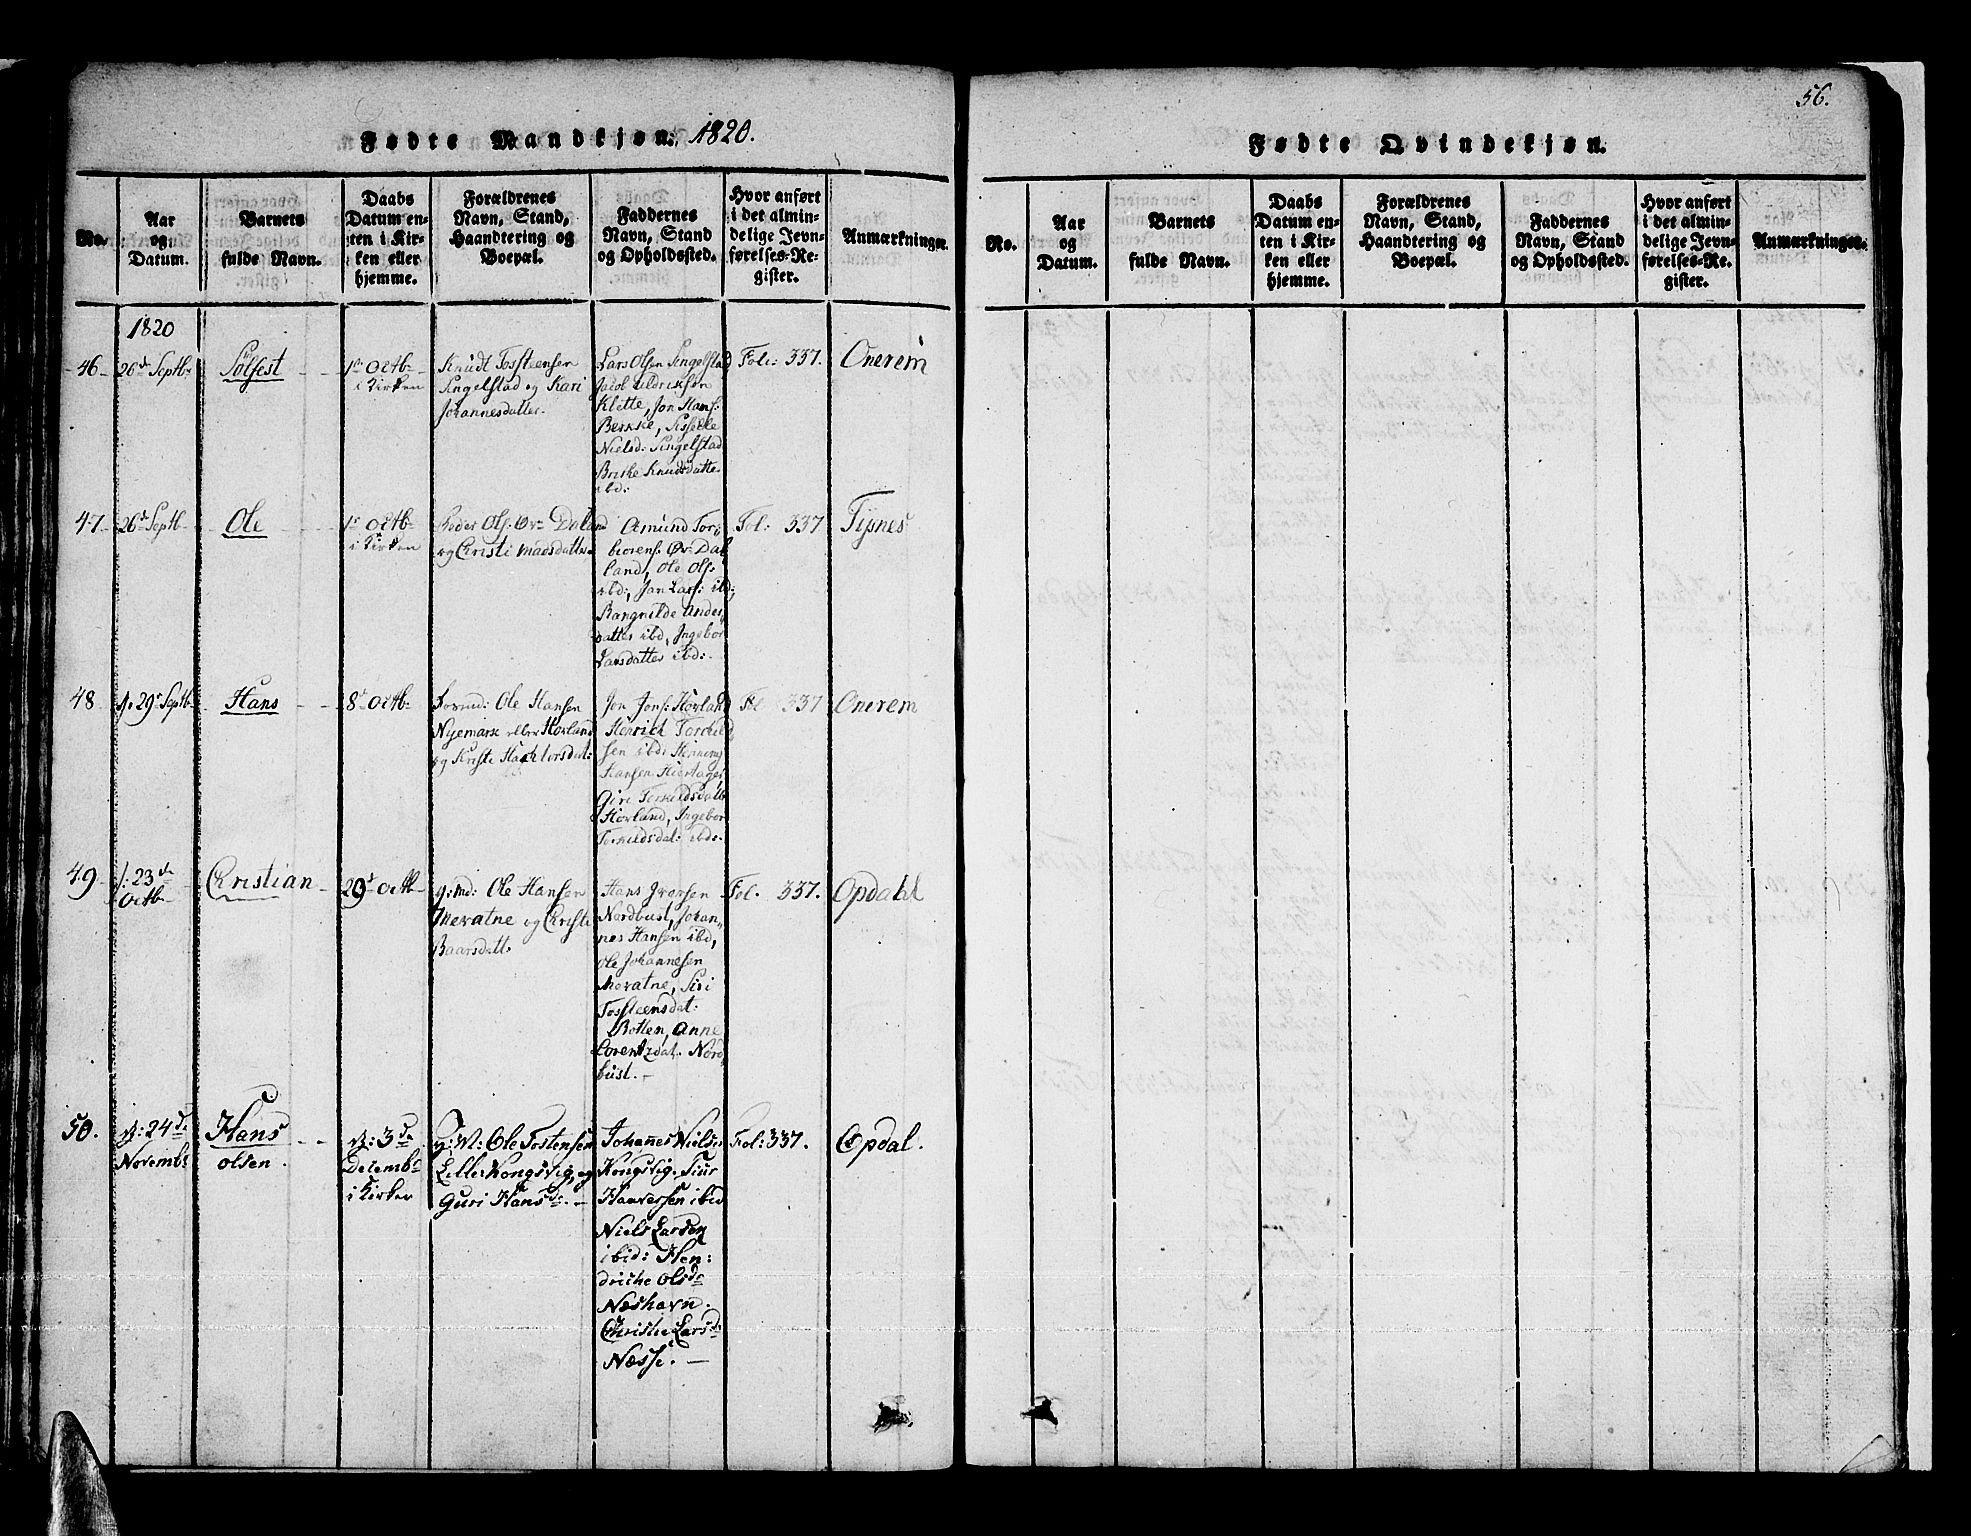 56.
Fødte Mandkjøn. 1820.
No.
Aar
og
Datum.
Barnets
fulde Navn.
Daabs
Datum en-
ten i Kir-
ken eller
hjemme.
Forældrenes
Navn, Stand,
Haandtering og
Boepæl.
Faddernes
Navn, Stand
og Opholdssted.
Hvor anført
i det almin-
delige Jevn-
førelses-Re-
gister.
Anmærkninger.
1820
46
26de Septb
Solfest
1te Octb
i Kirken
Knudt Tossteensen
Singelstad og Kari
Johannesdatter.
Lars Olsen Singelstad
Jacob Uldriksøn
Klette, Jon Hans:
Berkke, Sisselle
Nielsd: Singelstad
Briske Knudsdatter
ibd:
Fol: 337.
Onerem
47
26de Septb
Ole
1te Octb
i Kirken
Peder Ols: Øv: Daland
og Christi Madsdatter
Amund Tor-
biorens: Øv: Dal
land, Ole Ols
ibd:, Jan Lars: ibd;
Rangnilde Anders
datter ibd, Ingebor
Larsdatter ibd:
Fol: 337
Tysnes
48
f. 29de Septb
Hans
8de Octb
Ole Hansen
Nyemark eller Hovland
og Kriste
Jon Jons: Hovland
Henrich Torkild
sen ibd: Henning
Hansen Hiertager
Giri Torkildsdatter
Hovland, Ingebor
Torkildsdat: ibd:
Fol 337
Onerem
49
f: 23de
Octb
Christian
29de Octb
g: md: Ole Hansen
Meratne og Christi
Baarsdatt:
Hans Iversen
Nordbust, Johan-
nes Hansen ibd,
Ole Johannesen
Meratne, Siri
Tossteensdat:
Botten, Anne
Lorentzdat: Nord
bust.
Fol. 337.
Opdahl
50.
d: 24de
Novembr
Hans
olsen.
d: 3de
Decembr
i Kirken
g: M: Ole Tostensen
Lille Kongsvig, og
Guri Hansd:
Johannes Nielse
Kongsvig. Siur
Haaversen ibid
Niels Larsen
ibid: Hen:
driche Olsdr
Næshavn.
Christie Larsd:
Næsse.
Fol: 337.
Opdal.
Fødte Qvindekjøn.
No.
Aar
og
Datum.
Barnets
fulde Navn.
Daabs
Datum en-
ten i Kir-
ken eller
hjemme.
Forældrenes
Navn, Stand,
Haandtering og
Boepæl.
Faddernes
Navn, Stand
og Opholdssted.
Hvor anført
i det almin-
delige Jevn-
førelses-Re-
gister.
Anmærkninger.